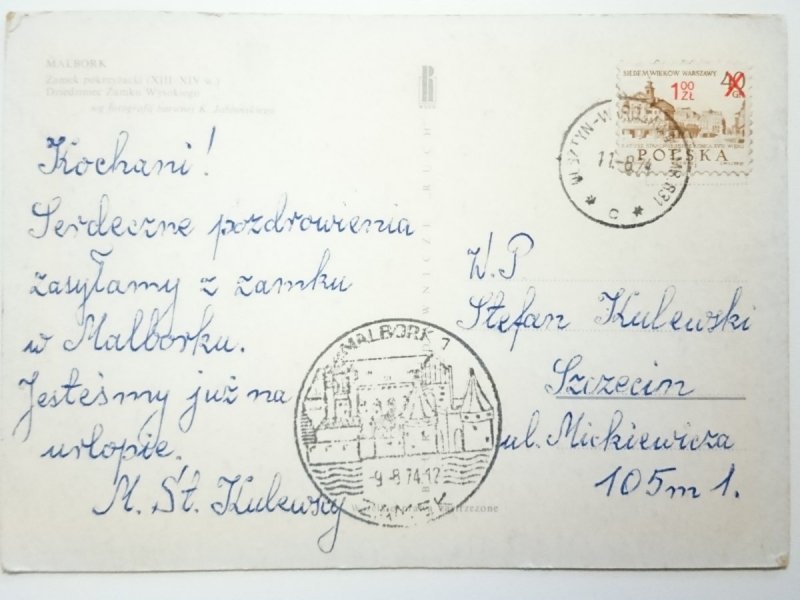 MALBORK
Zamek pokrzyżacki (XIII-XIV w.)
Dziedziniec Zamku Wysokiego
wg fotografii barwnej K. Jabłońskiego
Kochani!
Serdeczne pozdrowienia
zasyłamy z zamku
w Malborku.
Jesteśmy już na
urlopie.
M. St. Kulewscy
RUCH
SIEDEM WIEKÓW WARSZAWY
1.00 ZŁ
40 GR
POLSKA
11.-8.74
C
MALBORK 1
-9.-8.74.12
ZAMEK
W.P
Stefan Kulewski
Szczecin
ul. Mickiewicza
105 m 1.
zastrzeżone